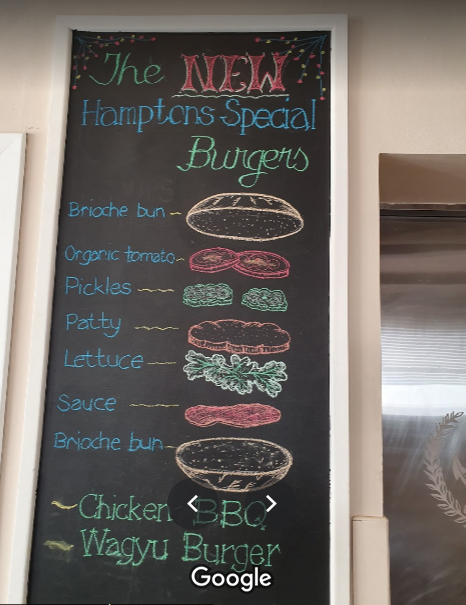 The NEW
Hamptons Special
Burgers
Brioche bun
Organic tomato
Pickles
Patty
Lettuce
Sauce
Brioche bun
Chicken BBQ
Wagyu Burger
Google